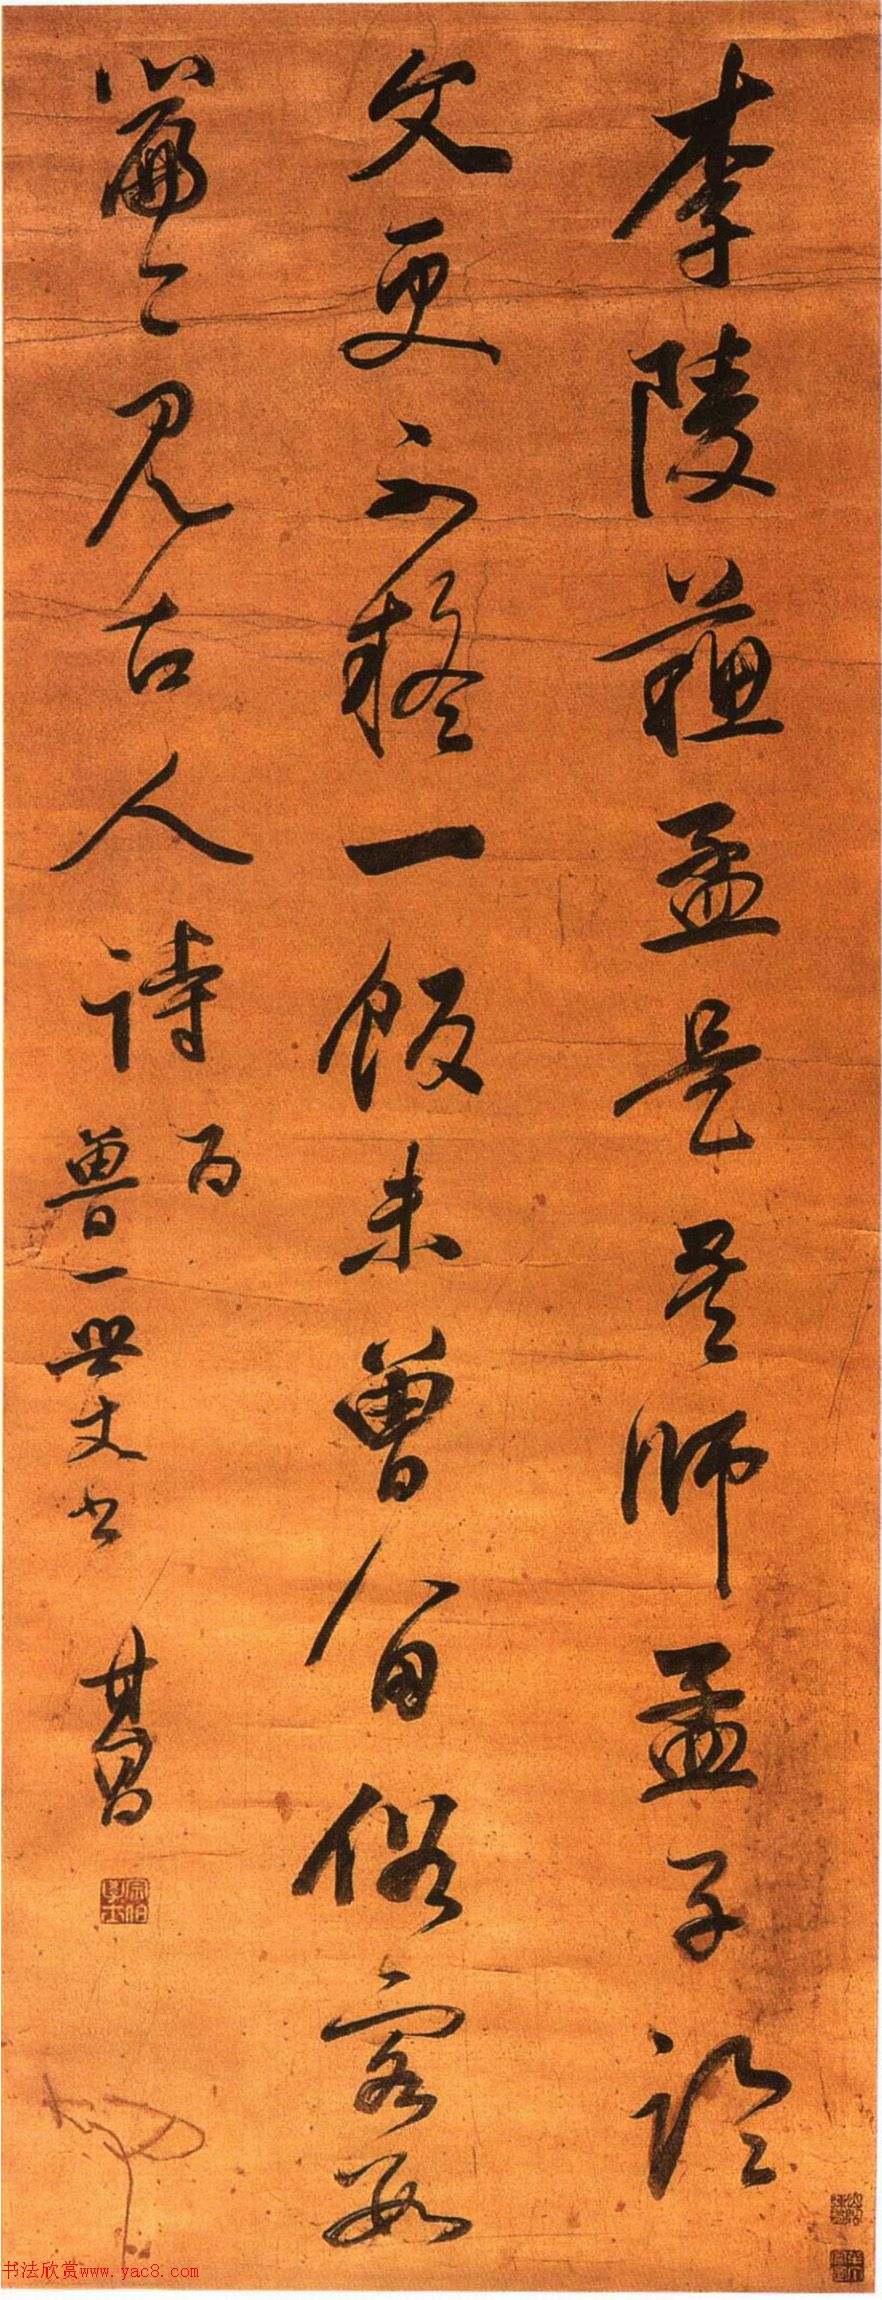 李陵蘓孟是吾師孟子論
文更不疑一飯未曾留俗客數
篇今見古人詩
爲
魯一世丈書
其昌
宗伯學士
书法欣赏www.yac8.com